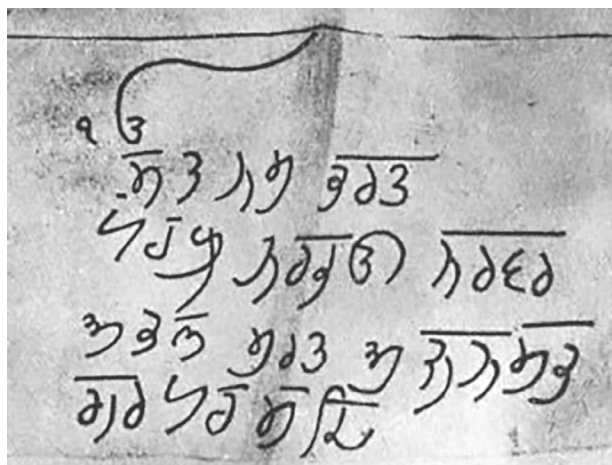 ੴ
ਸਤ ਨਮ ਕਰਤ
ਪਰਖ ਨਰਭੳ ਨਰਵਰ
ਅਕਲ ਮਰਤ ਅਜਨਸਭ
ਗਰ ਪਰਸਦ